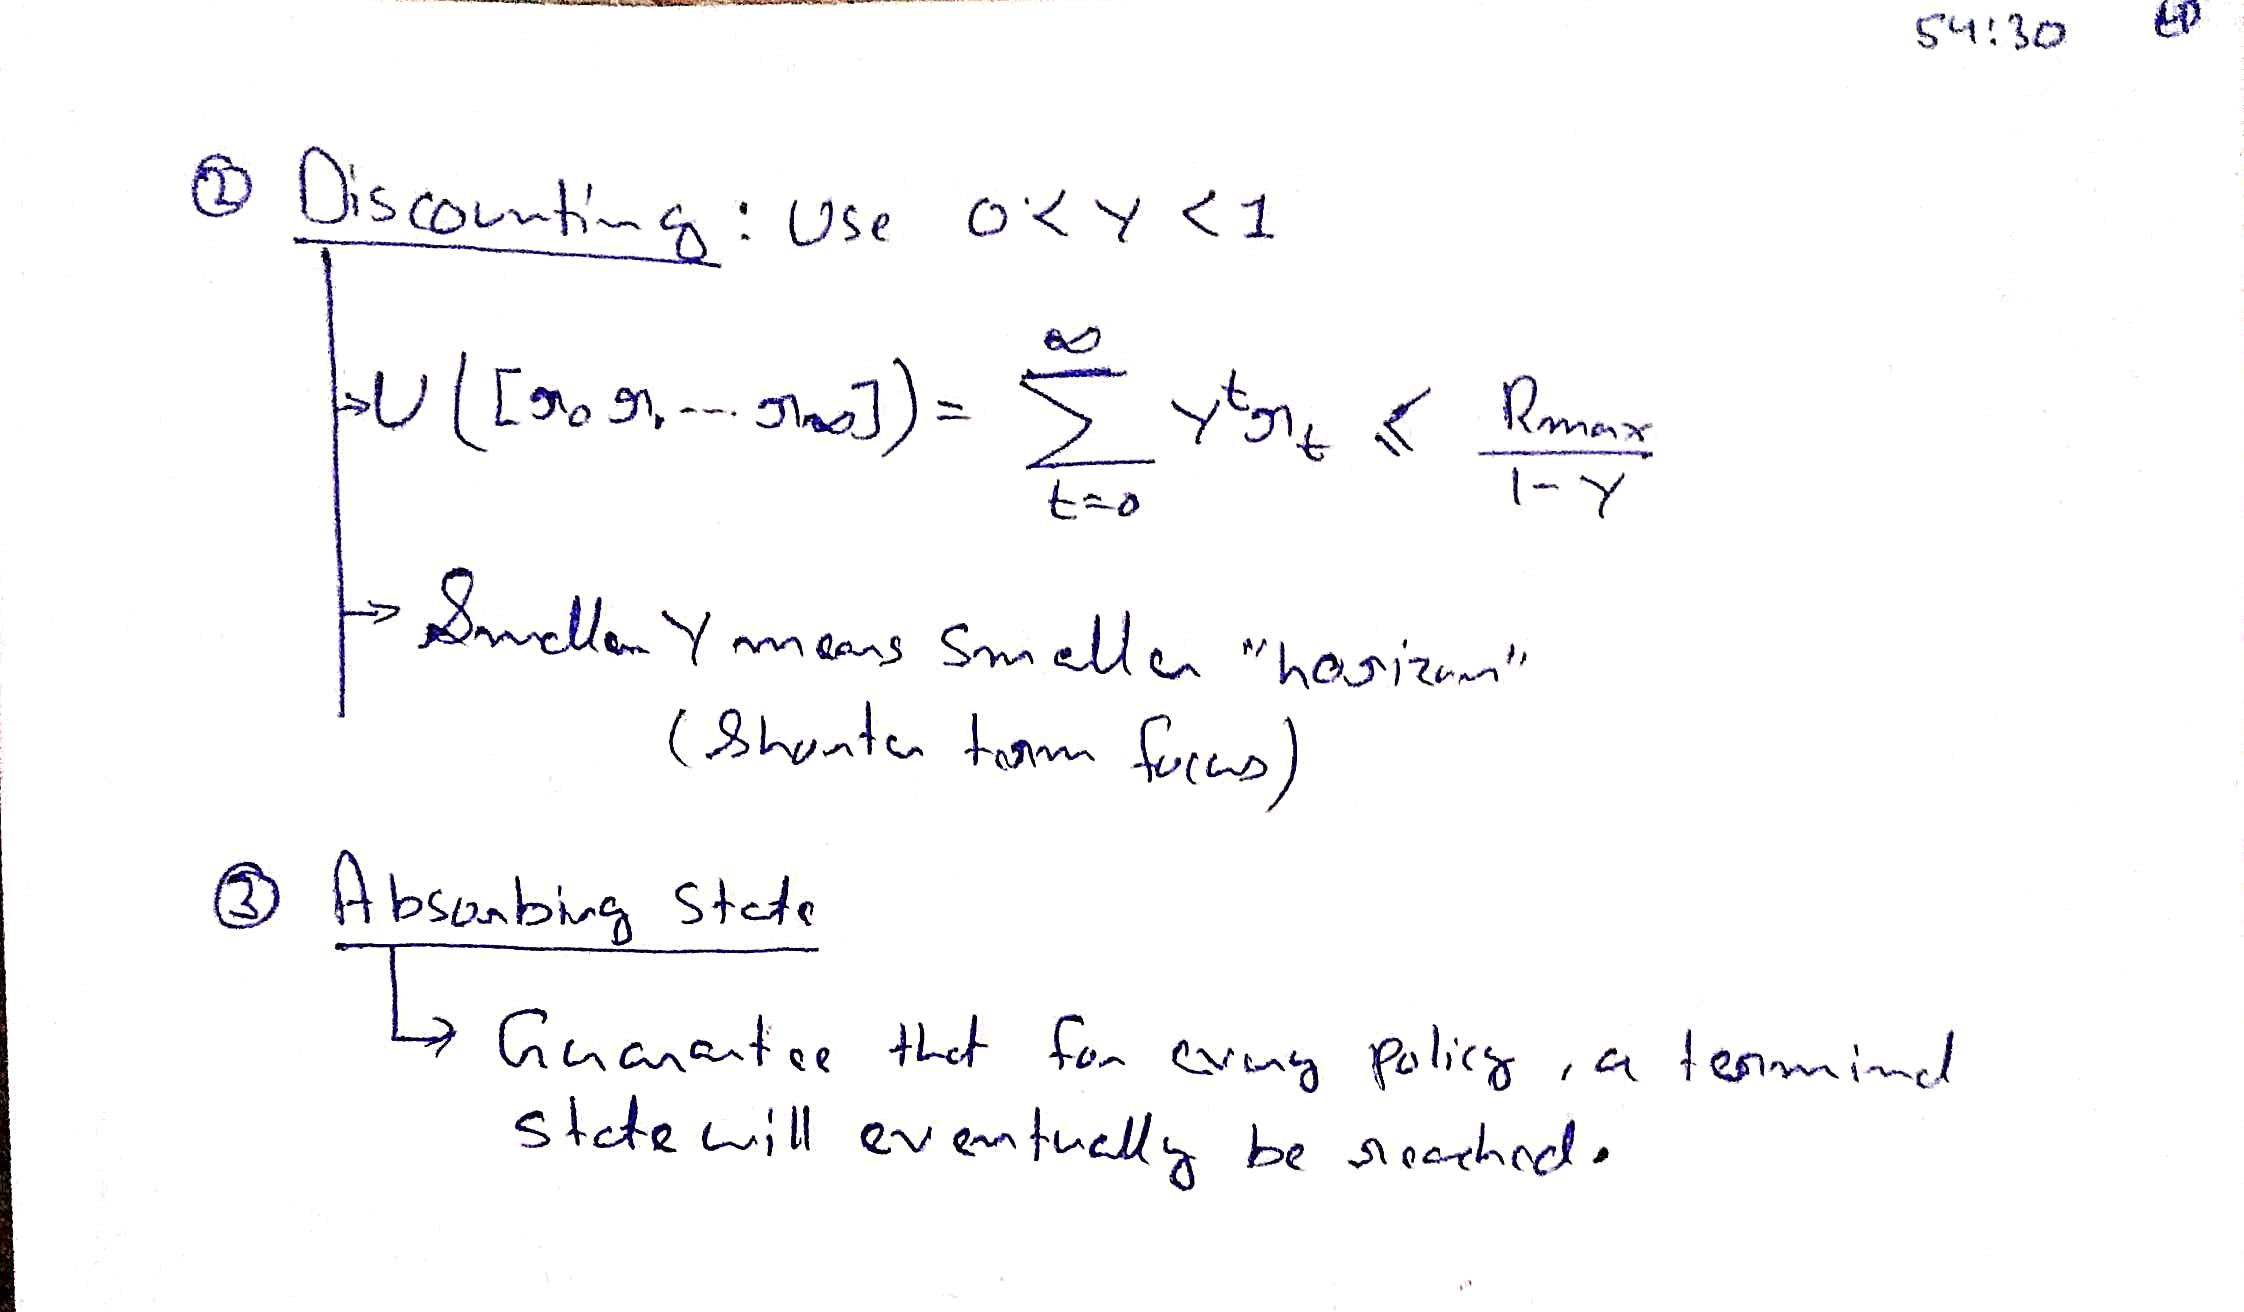 54:30
② Discounting: Use 0<γ<1
U([r₀ r₁ --- r∞]) = ∑_{t=0}^{∞} γᵗrₜ ≤ Rmax / 1-γ
Smaller γ means smaller "horizon"
(Shorter term focus)
③ Absorbing State
Guarantee that for every policy, a terminal
state will eventually be reached.